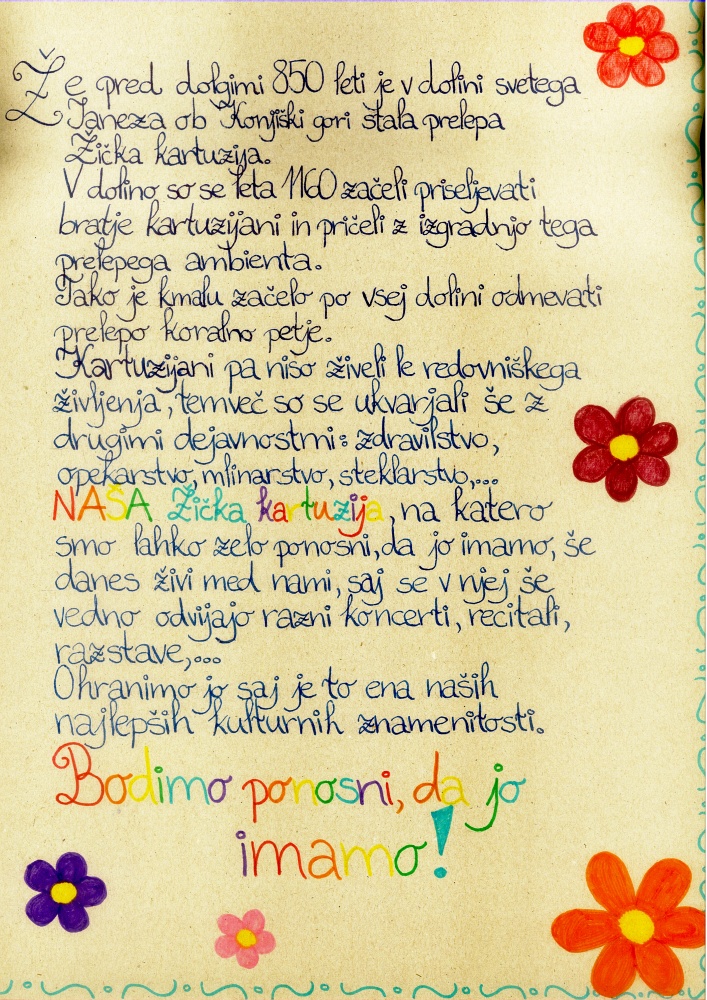 Že pred dolgimi 850 leti je v dolini svetega
Janeza ob Konjiški gori stala prelepa
Žička kartuzija.
V dolino so se leta 1160 začeli priseljevati
bratje kartuzijani in pričeli z izgradnjo tega
prelepega ambienta.
Tako je kmalu začelo po vsej dolini odmevati
prelepo koralno petje.
Kartuzijani pa niso živeli le redovniškega
življenja, temveč so se ukvarjali še z
drugimi dejavnostmi: zdravilstvo,
opekarstvo, mlinarstvo, steklarstvo,...
NAŠA Žička kartuzija, na katero
smo lahko zelo ponosni, da jo imamo, še
danes živi med nami, saj se v njej še
vedno odvijajo razni koncerti, recitali,
razstave,...
Ohranimo jo saj je to ena naših
najlepših kulturnih znamenitosti.
Bodimo ponosni, da jo
imamo!